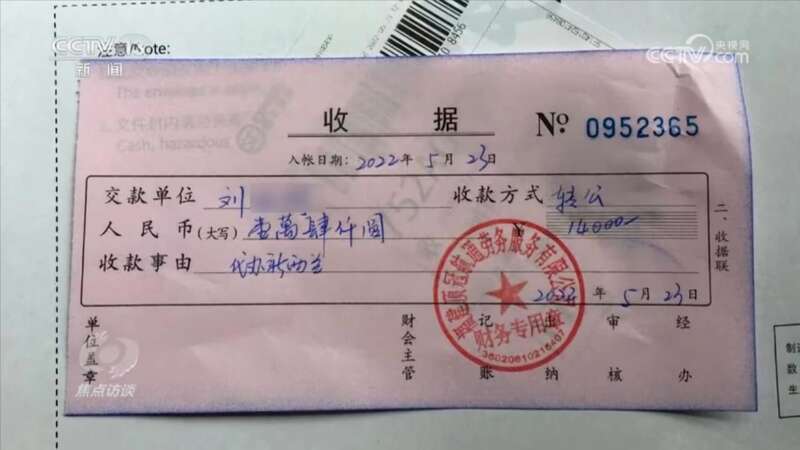 CCTV
新闻
央视网
CCTV.com
注意/Note:
收据
№ 0952365
入帐日期: 2022年5月23日
交款单位 刘 收款方式 转公
人民币(大写) 壹萬肆仟圆 14000-
收款事由 代办新西兰
2022年5月23日
二、收据联
财务专用章
单位盖章 财会主管 记账 出纳 审核 经办
焦点访谈